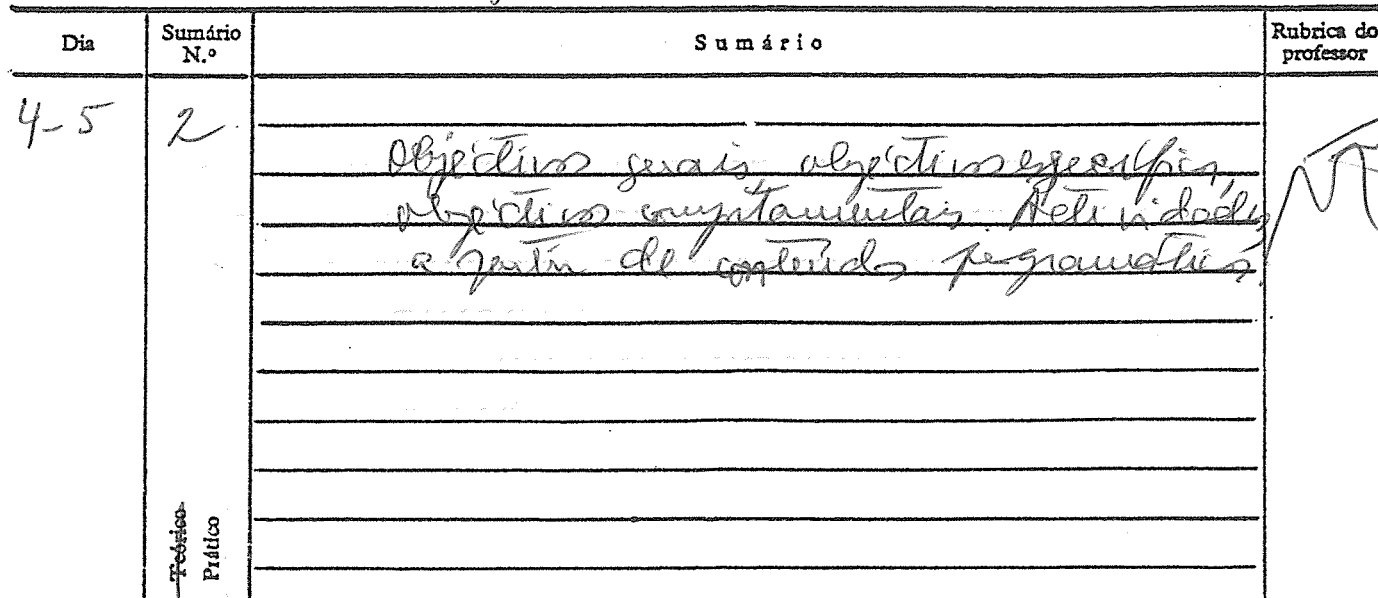 Dia Sumário N.º Sumário Rubrica do professor
4-5 2
Objectivos gerais, objectivos específicos,
objectivos comportamentais. Actividades
a partir de conteúdos programáticos.
Teórico
Prático